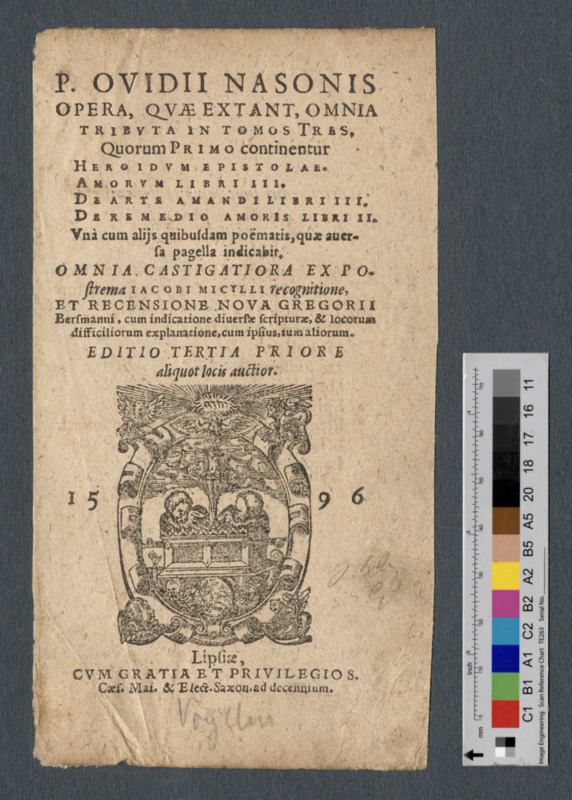 P. OVIDII NASONIS
OPERA, QVÆ EXTANT, OMNIA
TRIBVTA IN TOMOS TRES.
Quorum PRIMO continentur
HEROIDVM EPISTOLAE.
AMORVM LIBRI III.
DE ARTE AMANDI LIBRI III.
DE REMEDIO AMORIS LIBRI II.
Vnà cum alijs quibuſdam poëmatis, quæ auer-
ſa pagella indicabit.
OMNIA CASTIGATIORA EX PO-
ſtrema IACOBI MICYLLI recognitione,
ET RECENSIONE NOVA GREGORII
Berſmanni, cum indicatione diuerſæ ſcripturæ, & locorum
difficiliorum explanatione, cum ipſius, tum aliorum.
EDITIO TERTIA PRIORE
aliquot locis auctior.
15 96
Lipſiæ,
CVM GRATIA ET PRIVILEGIOS.
Cæſ. Mai. & Elect. Saxon. ad decennium.
C1 B1 A1 C2 B2 A2 B5 A5 20 18 17 16 11
Inch
mm
Image Engineering Scan Reference Chart TE263 Serial No.